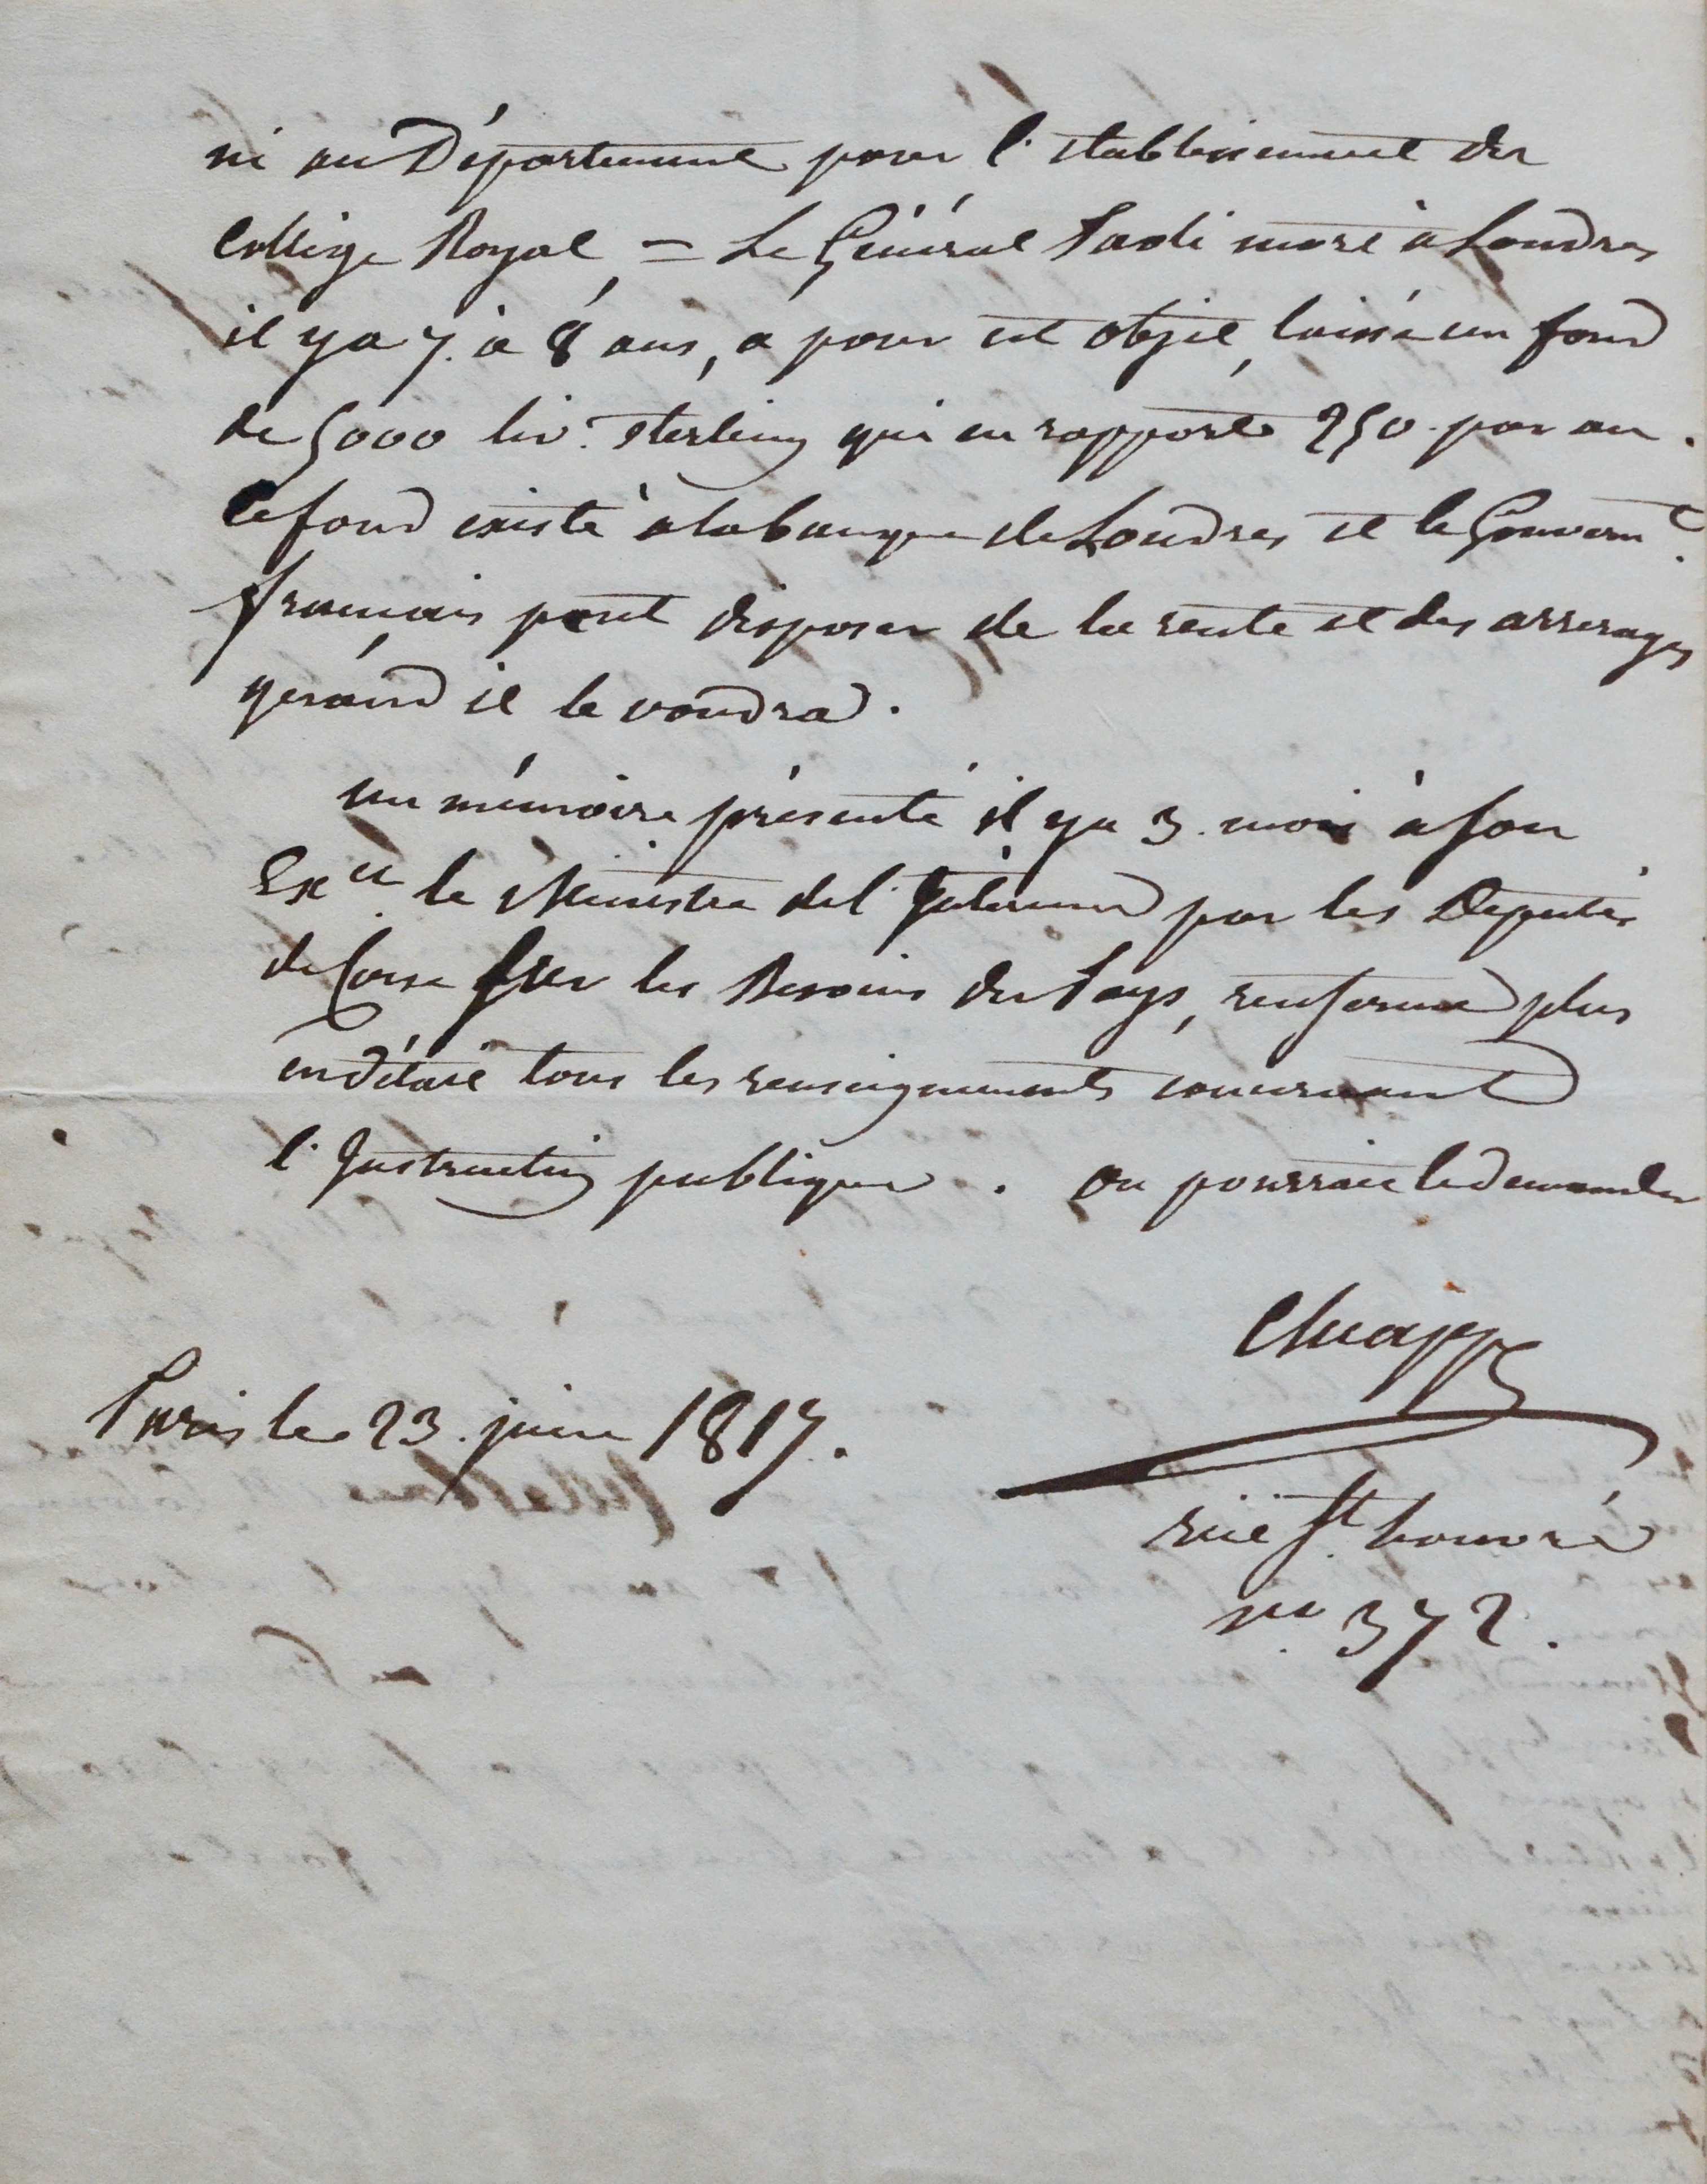 ni au Département pour l'établissement du
Collège Royal = Le Général Paoli mort à Londres
il y a 7. à 8 ans, a pour cet objet, laissé un fond
de 5000 liv. sterling qui en rapporte 250. par an.
Ce fond existe à la banque de Londres et le Gouvernt.
français peut disposer de la rente et des arrerages
quand il le voudra.
un mémoire présenté il y a 3. mois à son
Exce. le Ministre de l'Intérieur par les Députés
de Corse sur les Besoins du Pays, renferme plus
en détail tous les renseignements concernant
l'Instruction publique. on pourrait le demander
Chiappe
Paris le 23. juin 1817.
rüe St. honoré
no. 372.